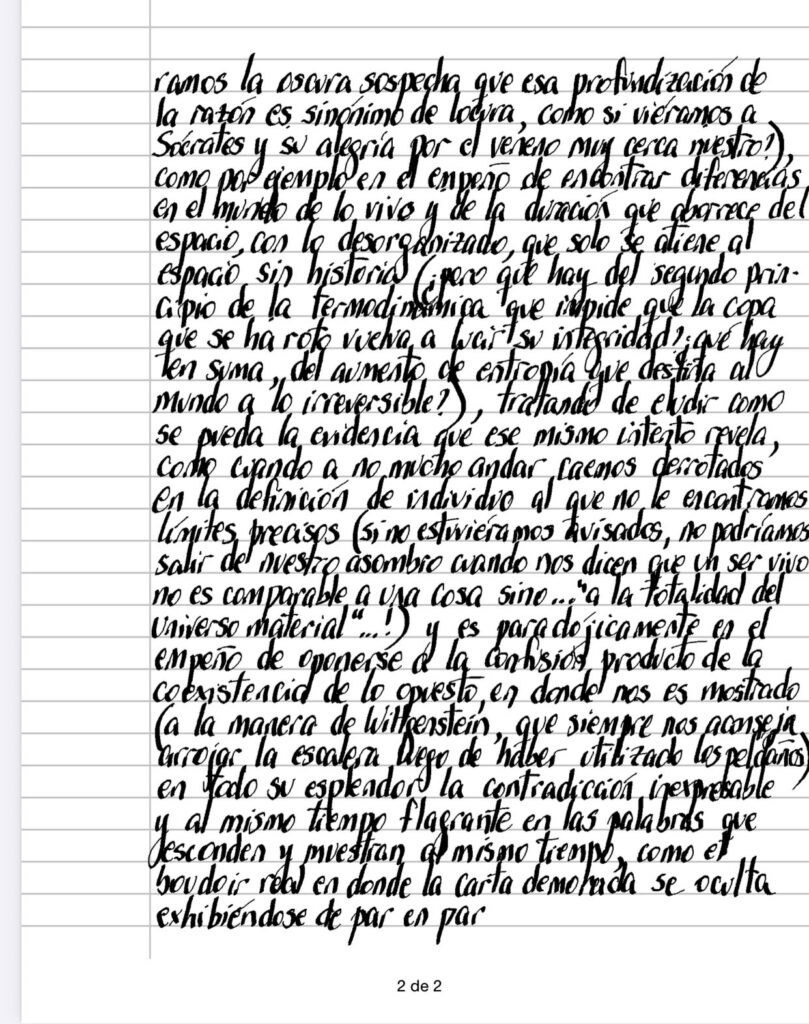 ramos la oscura sospecha que esa profundización de
la razón es sinónimo de locura, como si viéramos a
Sócrates y su alegría por el veneno muy cerca nuestro?),
como por ejemplo en el empeño de encontrar diferencias
en el mundo de lo vivo y de la duración que aborrece del
espacio, con lo desorganizado, que solo se atiene al
espacio sin historia (¿pero qué hay del segundo prin-
cipio de la termodinámica que impide que la copa
que se ha roto vuelva a lucir su integridad?; qué hay
en suma, del aumento de entropía que destina al
mundo a lo irreversible?), tratando de eludir como
se pueda la evidencia que ese mismo intento revela,
como cuando a no mucho andar caemos derrotados
en la definición de individuo al que no le encontramos
límites precisos (si no estuviéramos avisados, no podríamos
salir de nuestro asombro cuando nos dicen que un ser vivo
no es comparable a una cosa sino... "a la totalidad del
universo material"...!) y es paradójicamente en el
empeño de oponerse a la confusión, producto de la
coexistencia de lo opuesto, en donde nos es mostrado
(a la manera de Wittgenstein, que siempre nos aconseja
arrojar la escalera luego de haber utilizado los peldaños)
en todo su esplendor la contradicción inexpresable
y al mismo tiempo flagrante en las palabras que
esconden y muestran al mismo tiempo, como el
boudoir real en donde la carta se oculta
exhibiéndose de par en par
2 de 2